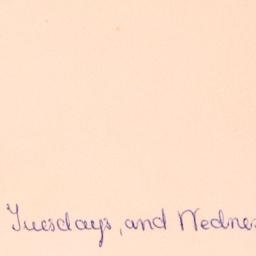 Tuesdays, and Wednes